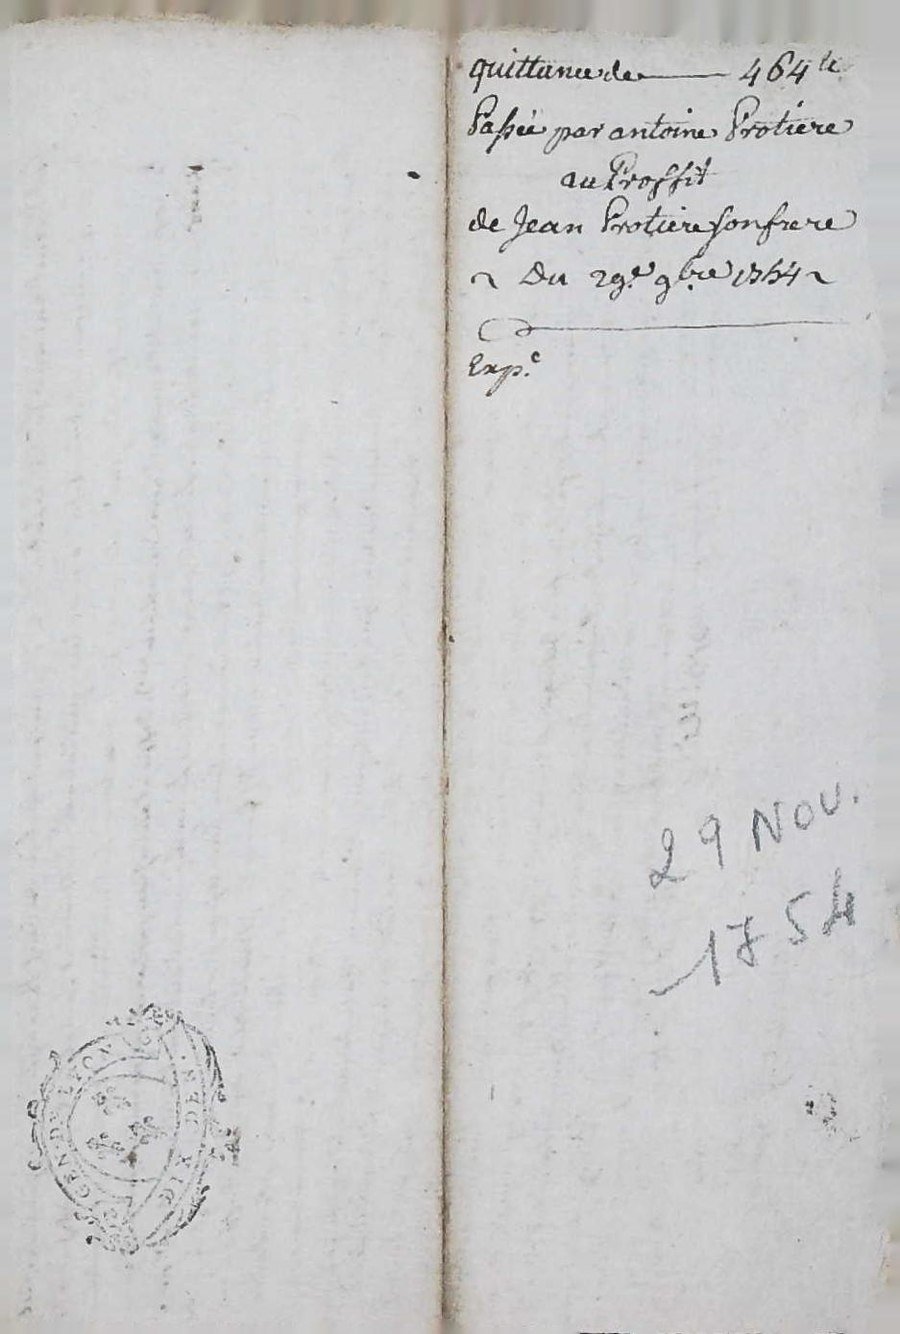 quittance de — 464 lt
Passée par antoine Protiere
au Proffit
de Jean Protiere son frere
~ Du 29.e 9bre 1754 ~
Exp.e
29 NOV.
1754
GEN. DE LYON
DIX DEN.